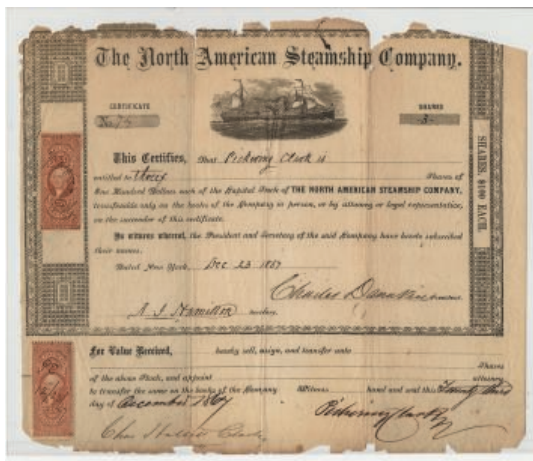 The North American Steamship Company.
CERTIFICATE
SHARES
No. 75
-3-
This Certifies, that Pickering Clark is
entitled to three Shares of
One Hundred Dollars each of the Capital Stock of THE NORTH AMERICAN STEAMSHIP COMPANY,
transferable only on the books of the Company in person, or by attorney or legal representative,
on the surrender of this certificate.
In witness whereof, the President and Secretary of the said Company have hereto subscribed
their names.
Dated New York, Dec 23 1867
Charles Dana President.
Hamilton Secretary.
SHARES, $100 EACH.
For Value Received, hereby sell, assign, and transfer unto
Shares
of the above Stock, and appoint attorney
to transfer the same on the books of the Company Witness hand and seal this Twenty third
day of December 1867
Pickering Clark
Clark